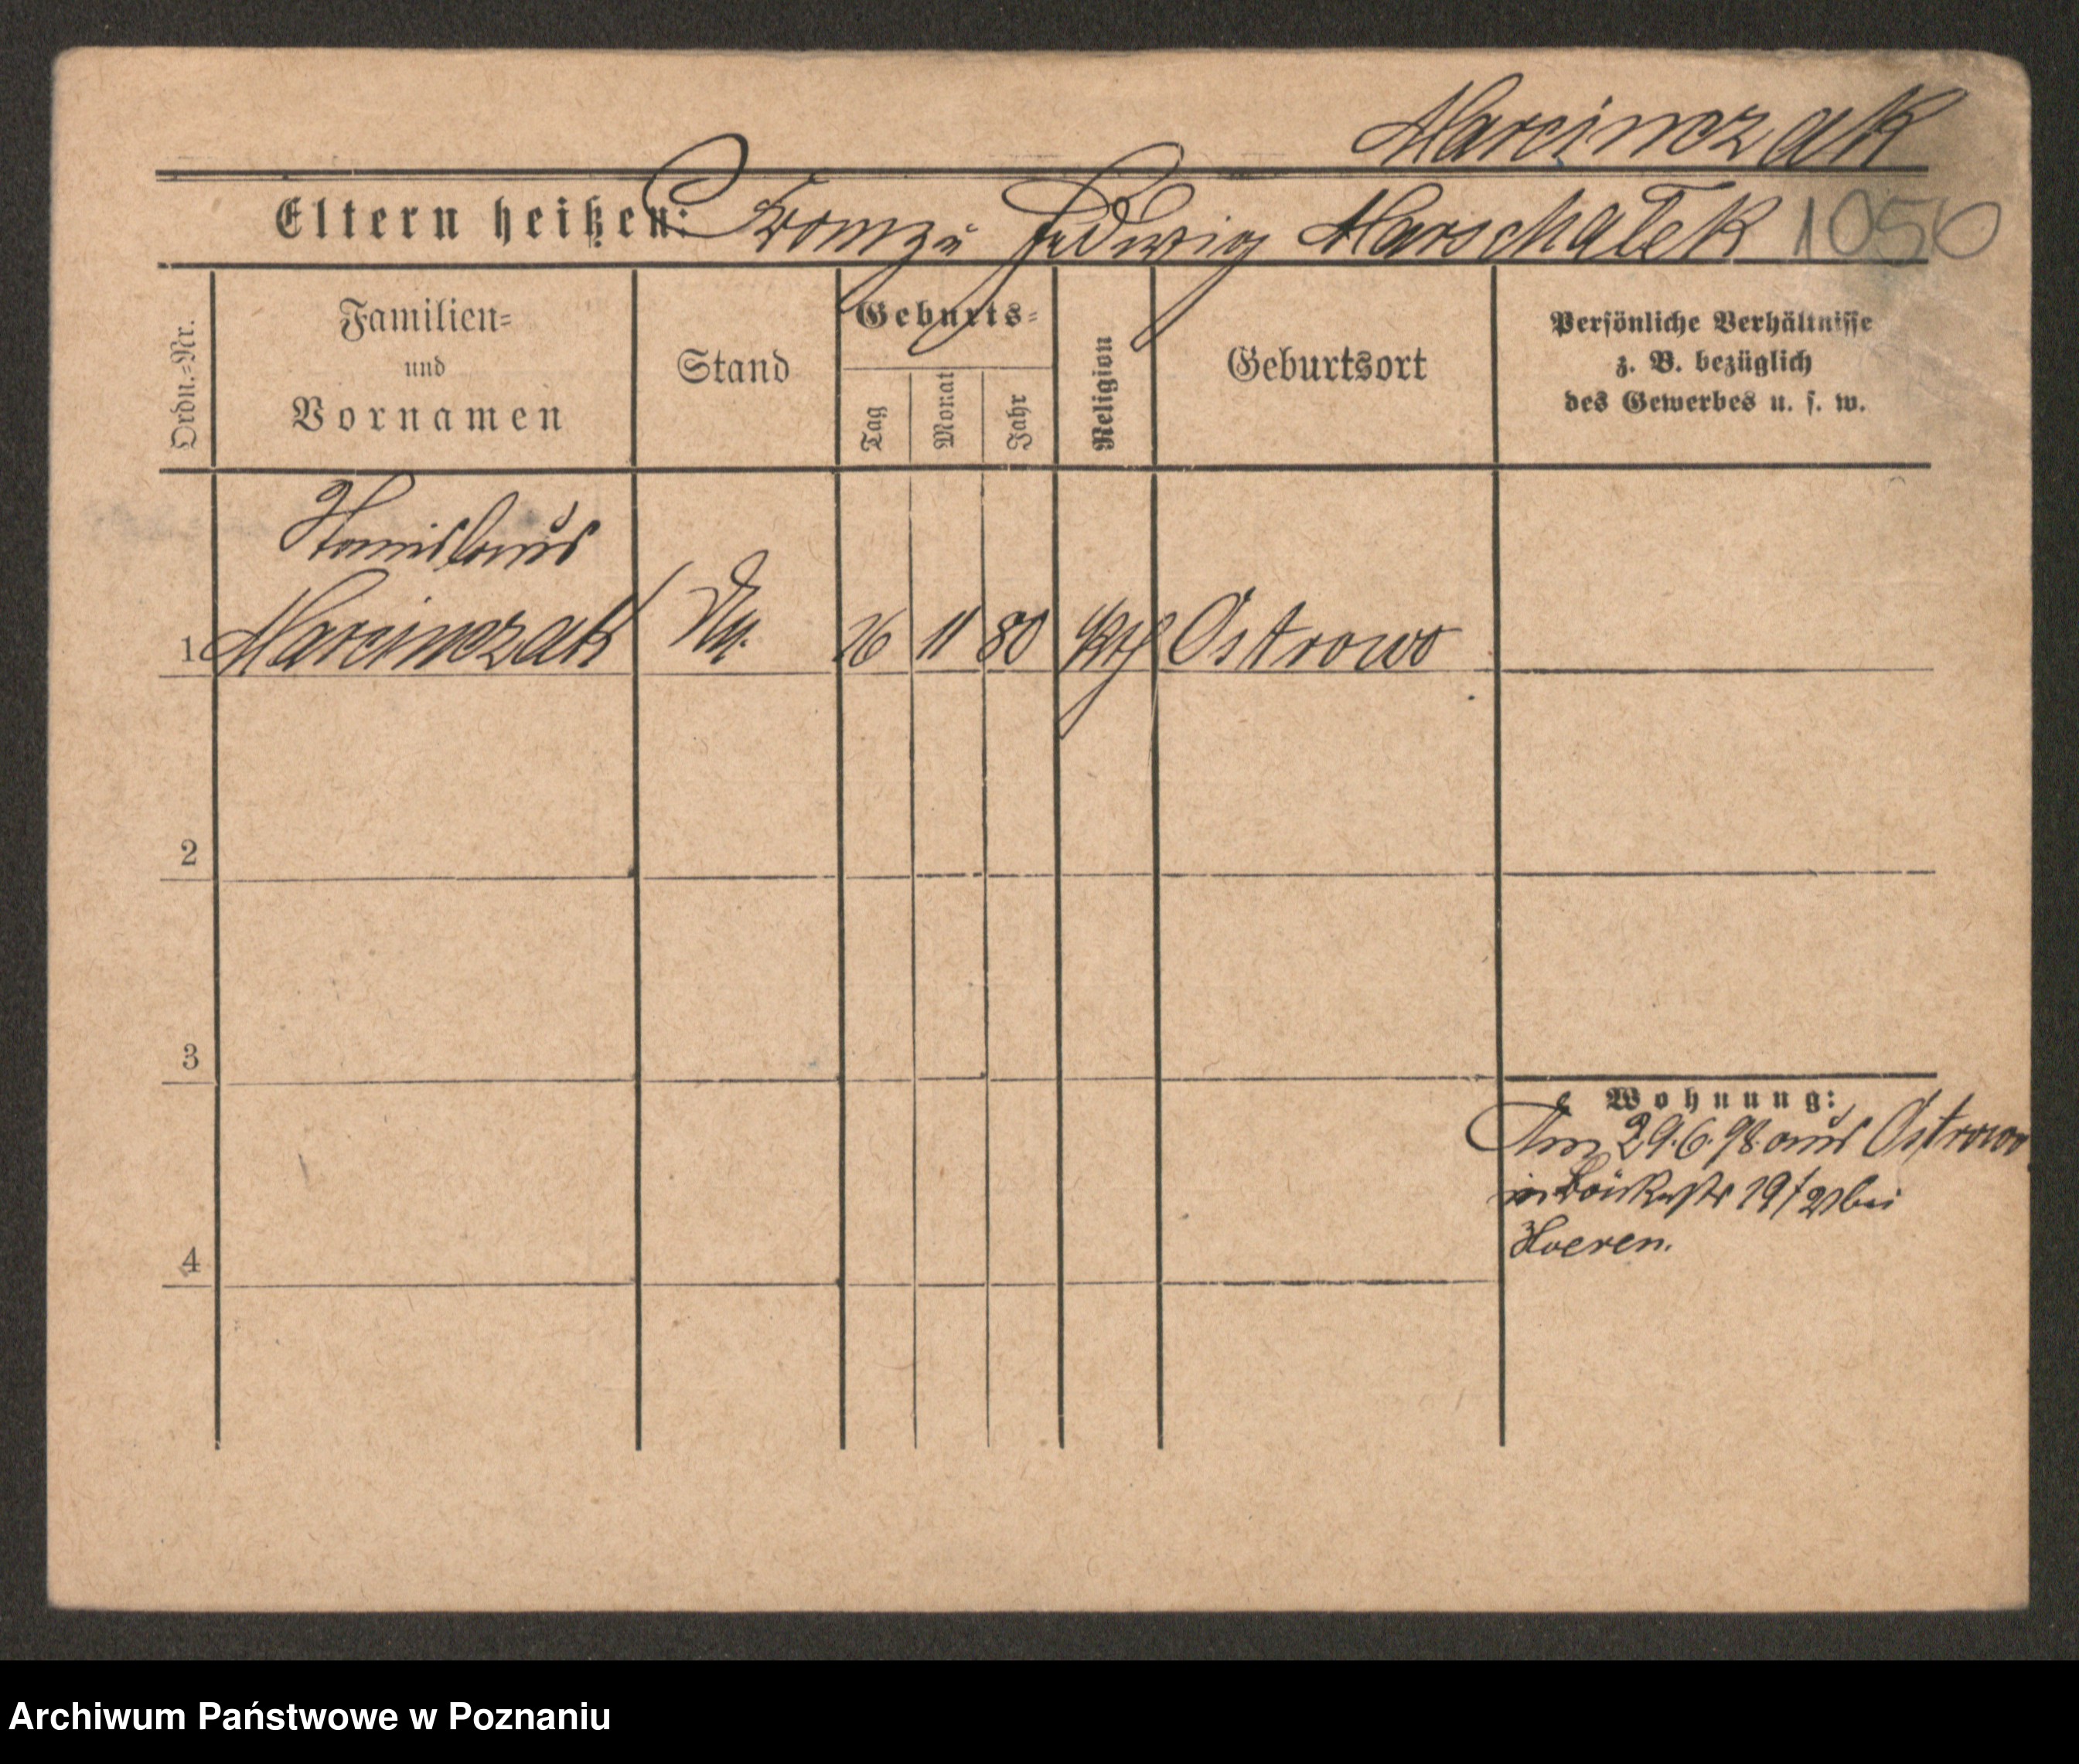 Marcinczak
Eltern heißen: Franz u Hedwig Marschalek 1050
Ordn.-Nr.
Familien-
und
Vornamen
Stand
Geburts-
Tag
Monat
Jahr
Religion
Geburtsort
Persönliche Verhältnisse
z. B. bezüglich
des Gewerbes u. s. w.
Stanislaus
1 Marcinczak 26 11 80 kth Ostrowo
2
3
Wohnung:
Am 29.6.98 aus Ostrowo
in 19/21 bei
Hoeren.
4
Archiwum Państwowe w Poznaniu